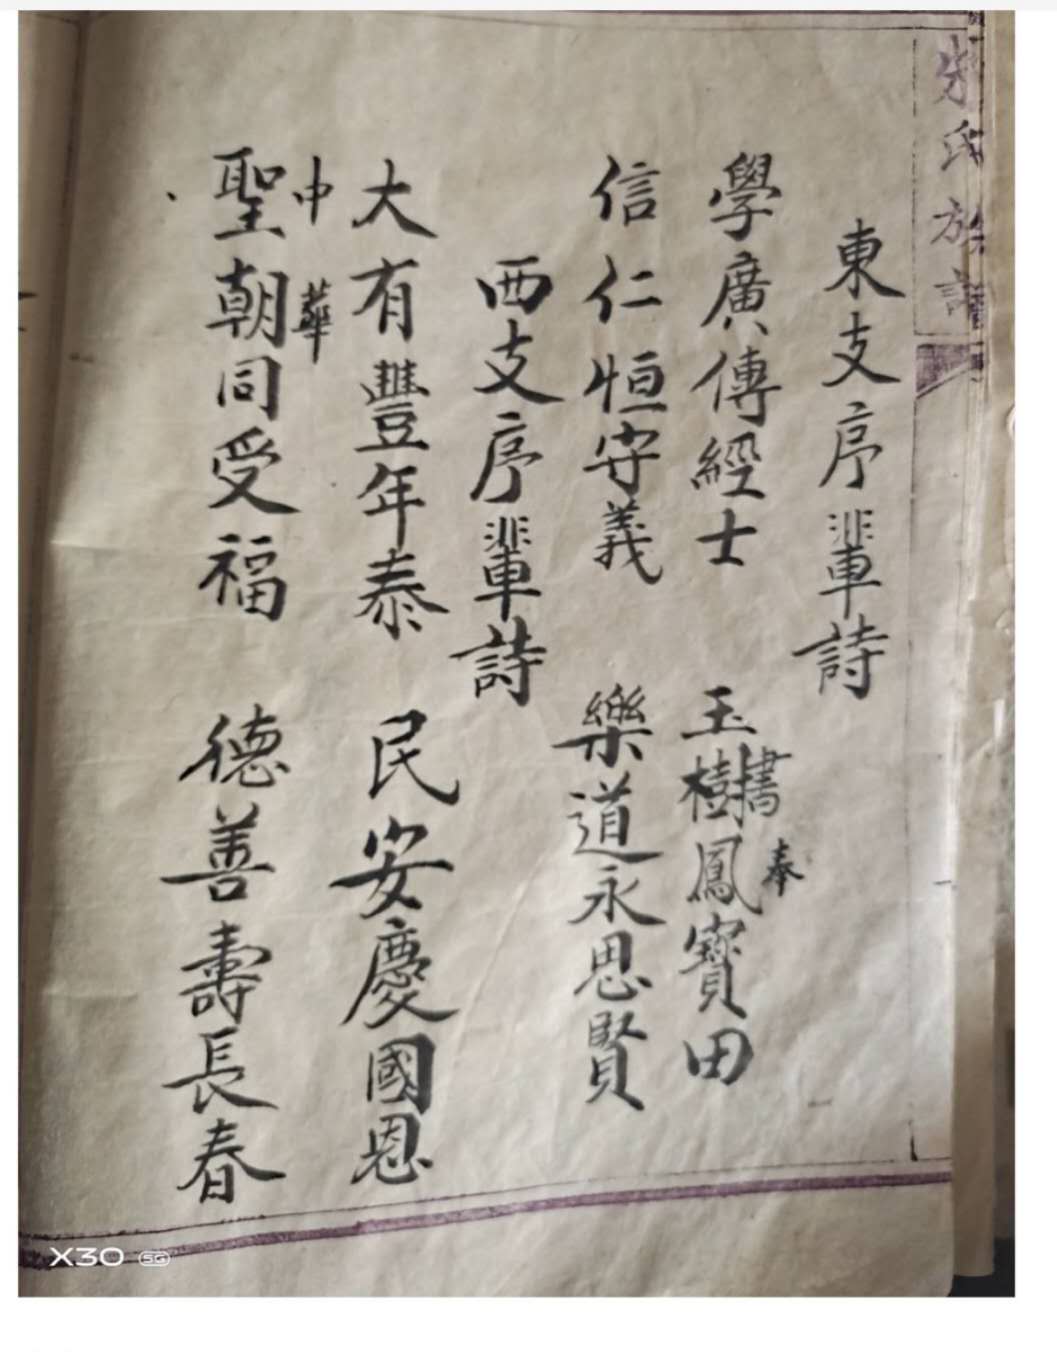 氏族譜
東支序輩詩
學廣傳經士 玉樹鳳寶田
奉
信仁恒守義 樂道永思賢
西支序輩詩
大有豐年泰 民安慶國恩
中華
聖朝同受福 德善壽長春
X30 5G